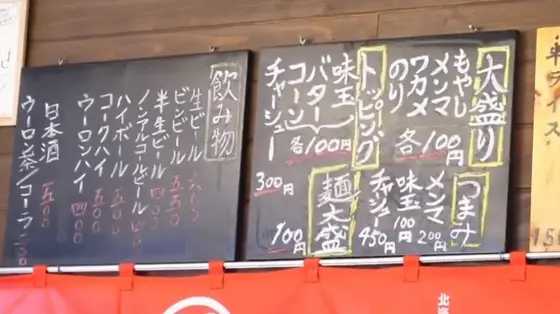 大盛り
もやし
メンマ
ワカメ
のり
各100円
トッピング
味玉
バター
コーン
各100円
チャーシュー
300円
つまみ
メンマ
200円
味玉
100円
チャシュー
450円
麺大盛
100円
飲み物
生ビール 六〇〇
ビンビール 五五〇
半生ビール 四〇〇
ノンアルコールビール
ハイボール 五〇〇
コークハイ 五〇〇
ウーロンハイ 四〇〇
日本酒 五〇〇
ウーロン茶/コーラ 二〇〇
北海